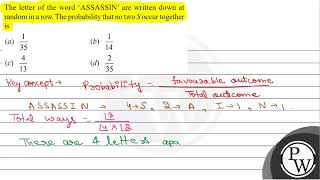 The letter of the word 'ASSASSIN' are written down at
random in a row. The probability that no two S occur together
is
(a) 1/35 (b) 1/14
(c) 4/13 (d) 2/35
Key concept → Probability = favourable outcome / Total outcome
ASSASSIN → 4→S, 2→A, I→1, N→1.
Total ways =
There are 4 letters apa
PW